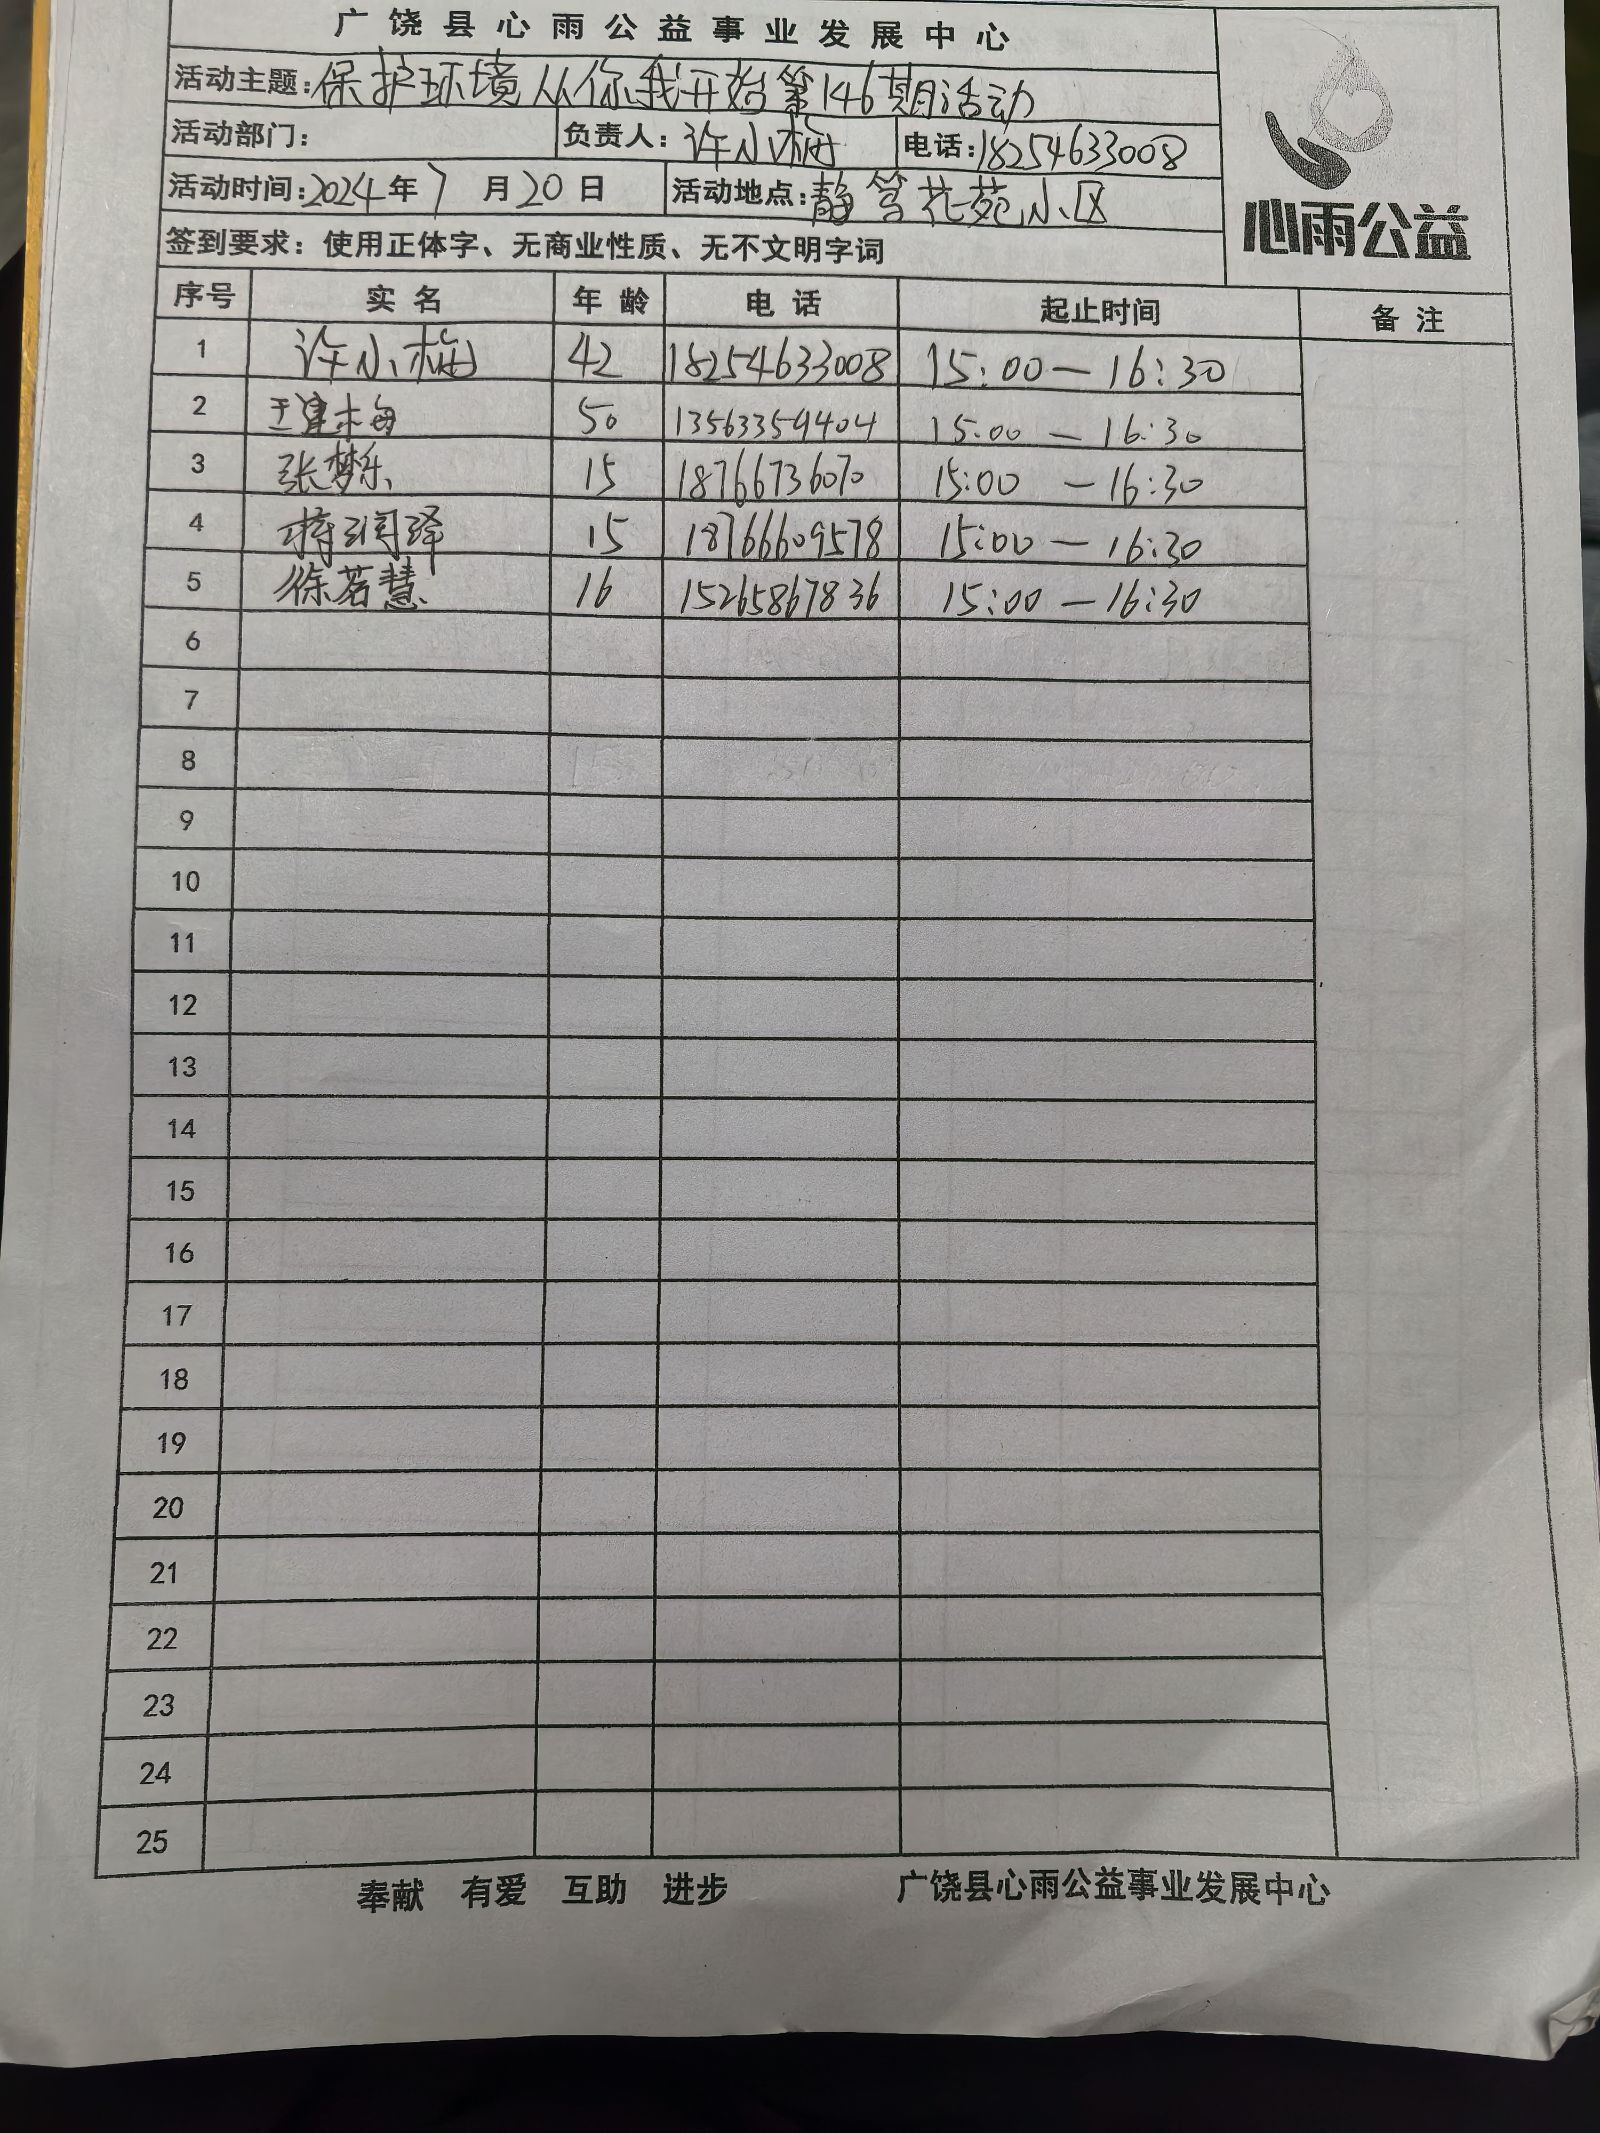 广饶县心雨公益事业发展中心
活动主题：保护环境从你我开始第146期活动
活动部门： 负责人：许小梅 电话：18254633008
心雨公益
活动时间：2024年7月20日 活动地点：静笃花苑小区
签到要求：使用正体字、无商业性质、无不文明字词
序号 实名 年龄 电话 起止时间 备注
1 许小梅 42 18254633008 15:00—16:30
2 王建梅 50 13563359404 15:00—16:30
3 张梦乐 15 18766736070 15:00—16:30
4 蒋润泽 15 18766609578 15:00—16:30
5 徐茗慧 16 15265867836 15:00—16:30
6
7
8
9
10
11
12
13
14
15
16
17
18
19
20
21
22
23
24
25
奉献 有爱 互助 进步 广饶县心雨公益事业发展中心